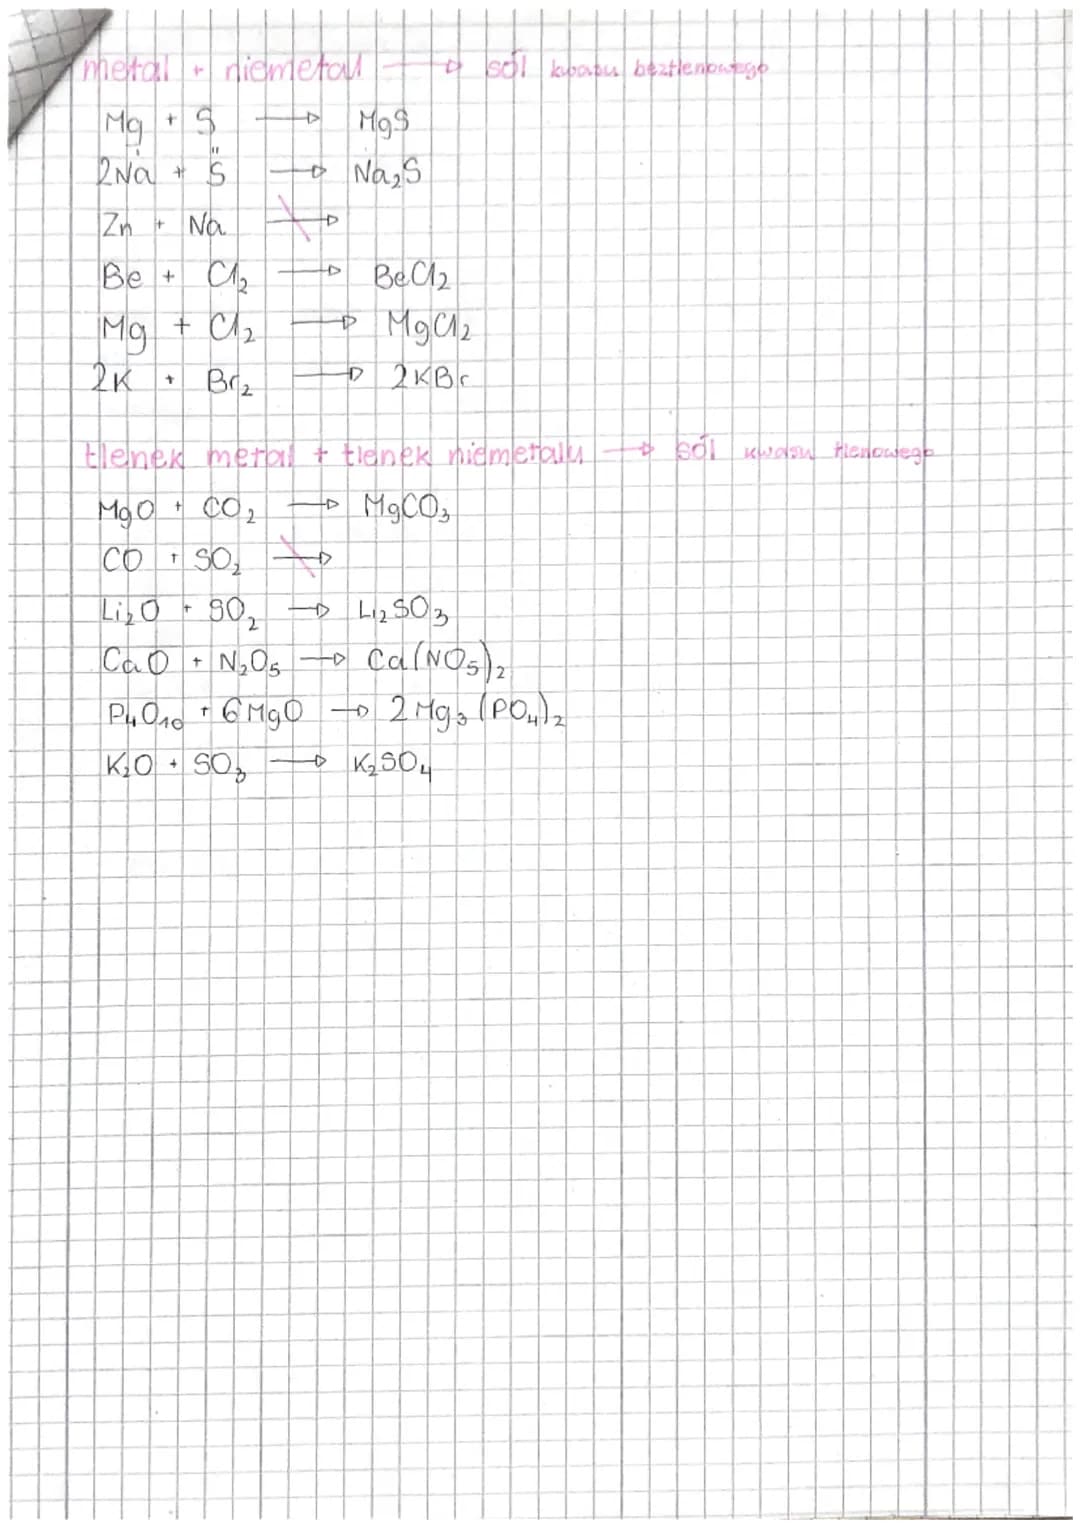 metal + niemetal → sól kwasu beztlenowego
Mg + S → MgS
2Na + S → Na₂S
Zn + Na →
Be + Cl₂ → BeCl₂
Mg + Cl₂ → MgCl₂
2K + Br₂ → 2KBr
tlenek metal + tlenek niemetalu → sól kwasu tlenowego
MgO + CO₂ → MgCO₃
CO + SO₂ →
Li₂O + SO₂ → Li₂SO₃
CaO + N₂O₅ → Ca(NO₅)₂
P₄O₁₀ + 6MgO → 2Mg₃(PO₄)₂
K₂O + SO₃ → K₂SO₄